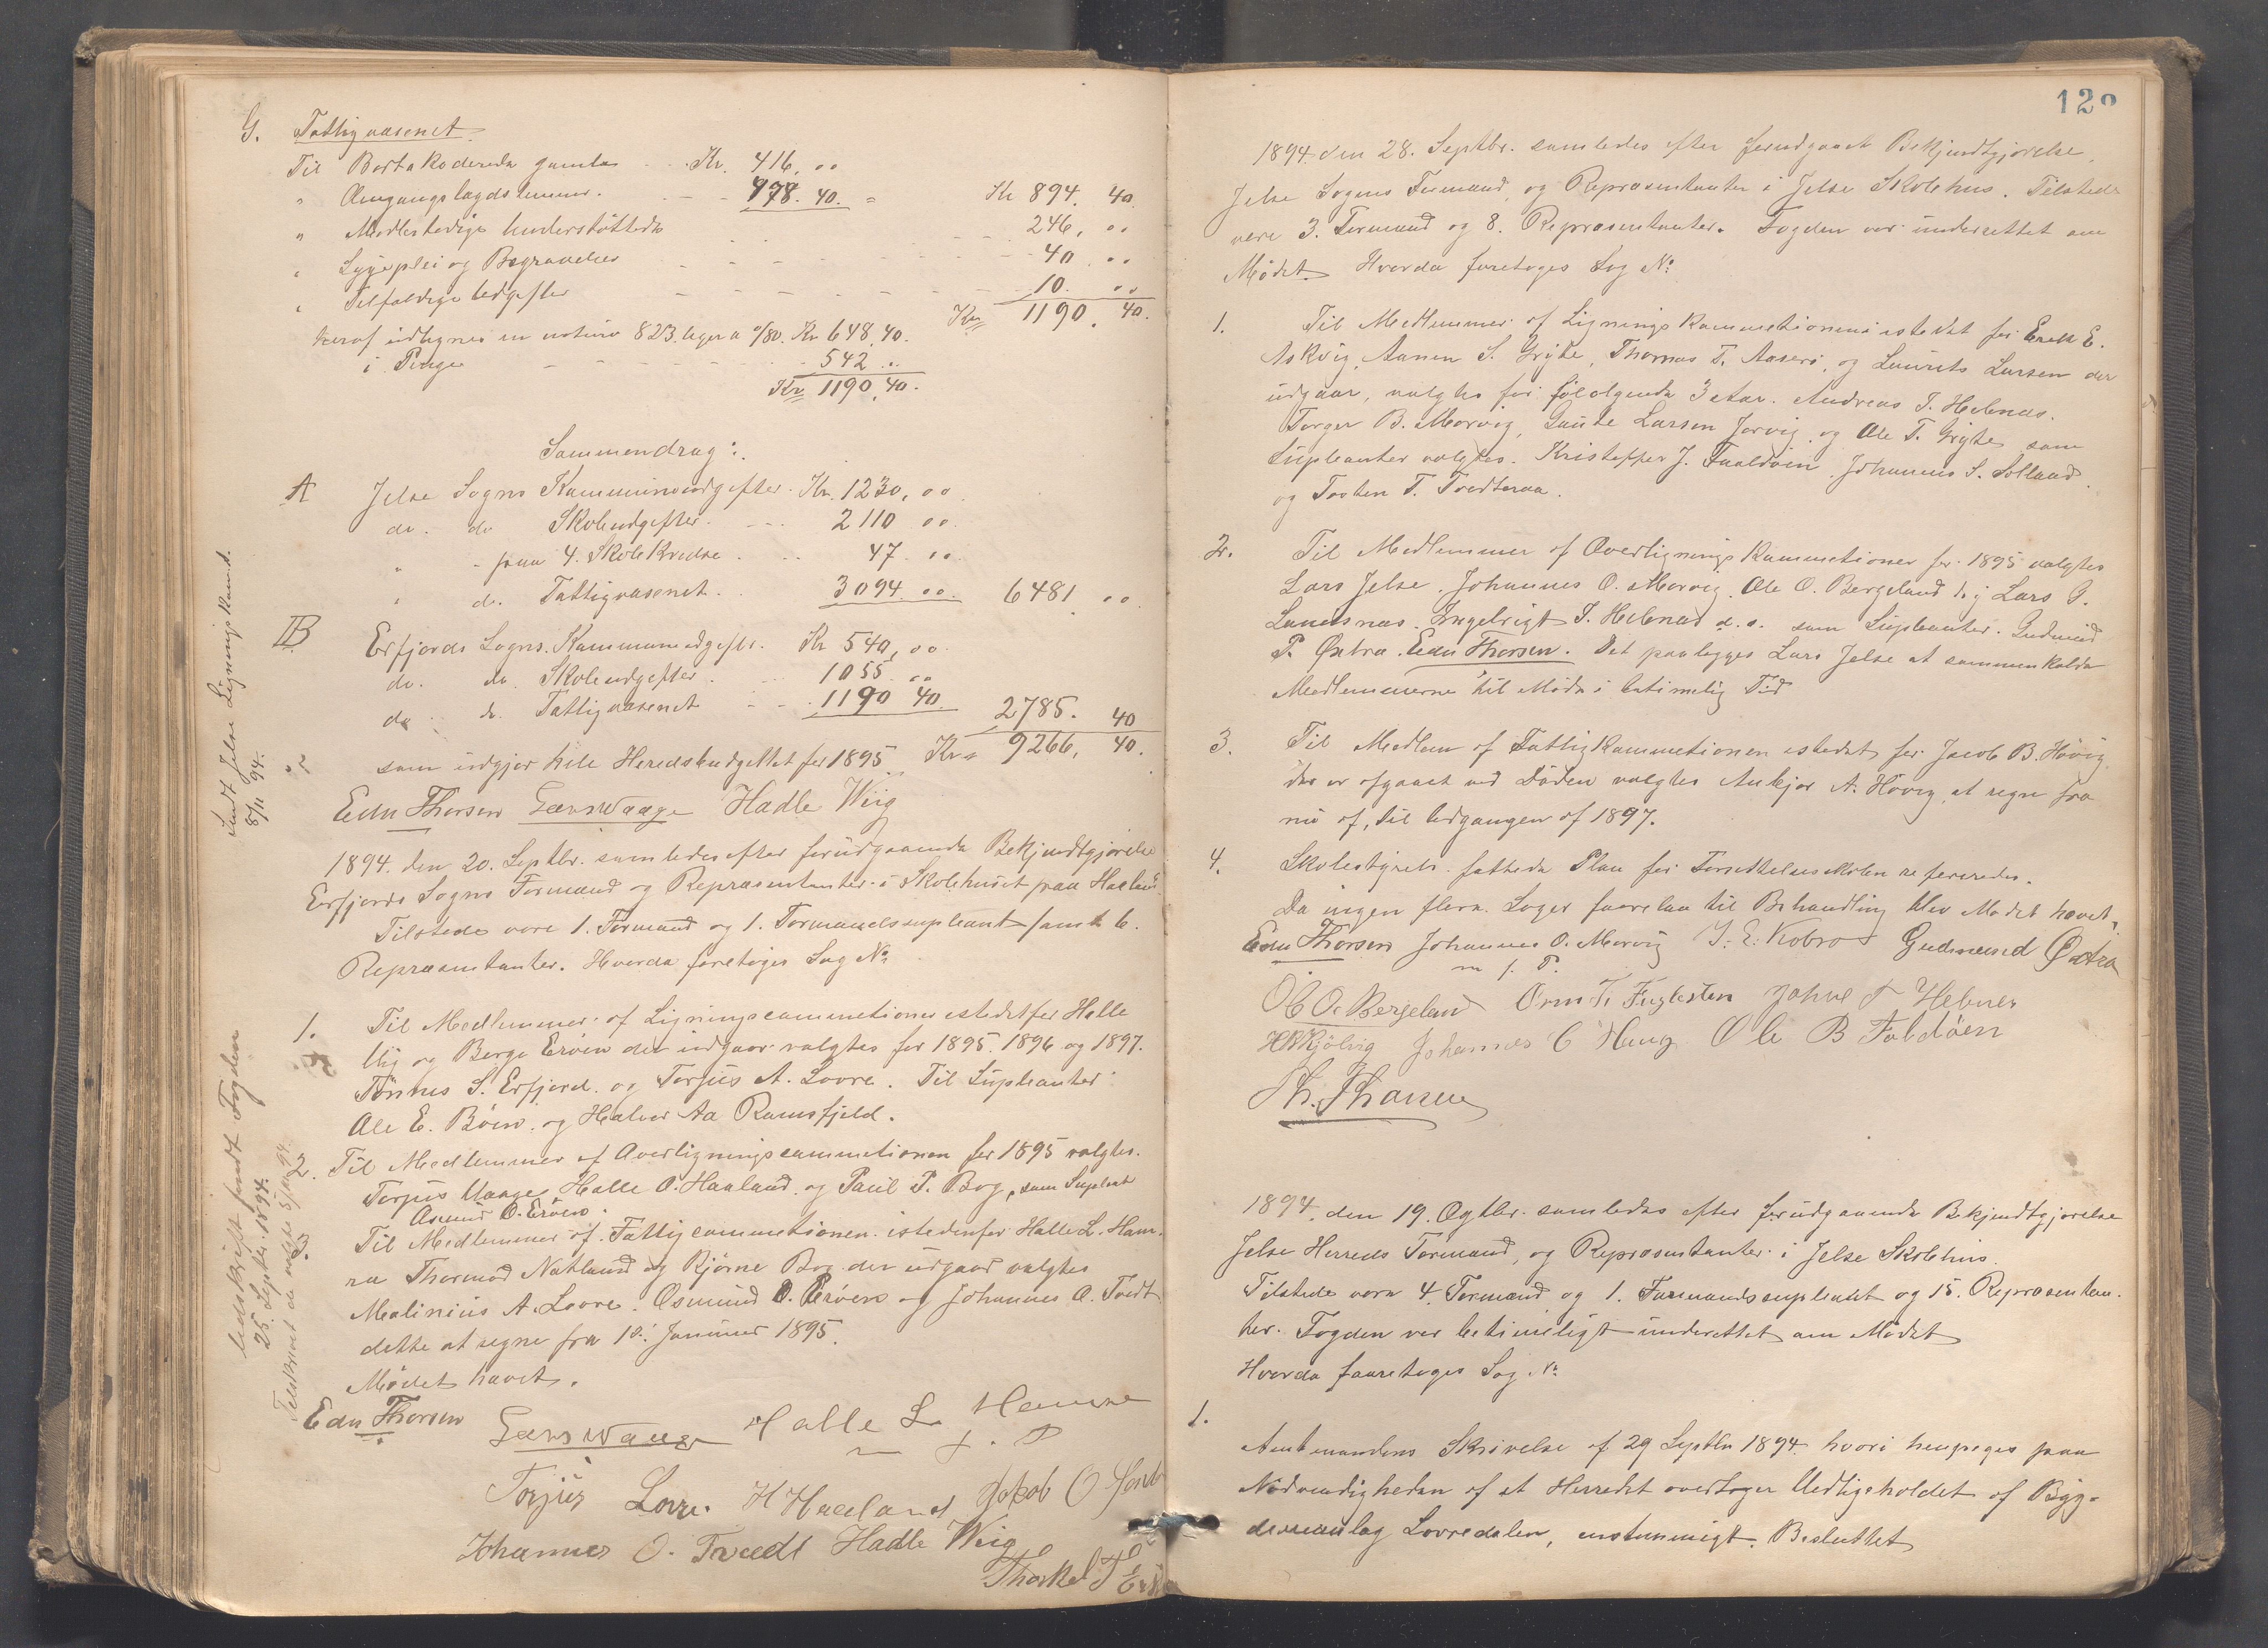 G. Fattigvæsenet.
Til Bortakoderede gamle Kr. 416, 00
" Omgangslægdslemmer. 478. 40. = Kr 894. 40
" Understøttede 246, 00
" Sygeplei og Begravelser 40 00
" Tilfældige Udgifter 10. 00
Kr 1190. 40.
heraf udlignes in natura 823. a /80. Kr 648, 40.
i Penge 542 ..
Kr 1190, 40.
Sammendrag:
A Jelse Sogns Kommuneudgifter. Kr. 1230, 00
do. do Skoleudgifter. 2110 00.
" - paa 4. Skolekredse. 47 00
" do. Fattigvæsenet. 3094. 00. 6481 00
B Erfjords Sogns. Kommuneudgifter. Kr 540, 00
do. do. Skoleudgifter. 1055 00
do. do. Fattigvæsenet 1190 40. 2785. 40
som udgjør hele Heredsbudgettet for 1895. Kr 9266, 40.
Edn Thorsen Hadle Wiig
1894. den 20. Septbr. samledes efter forudgaaende Bekjendtgjørelse
Erfjords Sogns Formænd og Repræsentanter i Skolehuset paa
Tilstede vare 1. Formand og 1. Formandssupleant samt 6.
Repræsentanter. Hvorda foretoges Sag No
1. Til Medlemmer af Ligningscommetionen istedetfor Helle
og Berge Erøen der udgaar valgtes for 1895. 1896 og 1897.
Tønnes S. Erfjord. og Torjus A. Lovre. Til Supleanter
Ole E. Bøen. og Halvor Aa Ramsfjeld.
2. Til Medlemmer af Overligningscommetionen for 1895 valgtes.
Torjus Vaage, Halle O. Haaland. og Paul P. Bog, som Supleant
Asmund O. Erøen.
3. Til Medlemmer af Fattigcommetionen istedenfor Halle L. Ham-
re Thormod Natland og Bjørne Bog der udgaar valgtes
Malinius A. Lovre. Osmund O. Erøen og Johannes O. Tvedt
dette at regne fra 1ste Januar 1895.
Mødet hævet.
Edn Thorsen Halle L. Hamre
m f. P
Torjus Lovre. H Haaland Jakob O
Johannes O. Tveedt Hadle Wiig
Thorkel T
Sendt Jelse Ligningskomd.
8/11 94.
Udskrift sendt Fogden
25. Septbr. 1894.
Tilskrevet de valgte 94.
1894 den 28. Septbr. samledes efter forudgaaet Bekjendtgjørelse,
Jelse Sogns Formænd, og Repræsentanter i Jelse Skolehus. Tilstede
vare 3. Formænd og 8. Repræsentanter. Fogden var underrettet om
Mødet. Hvorda foretoges Sag No
1. Til Medlemmer af Ligningskommetionen istedet for Erik E.
Askvig, Aanen S. Grjte, Thomas T. Aaserø, og Laurits Larsen der
udgaar, valgtes for følgende 3 Aar. Andreas T. Hebnes.
Torger B. Marvig, Gaute Larsen Jørvig, og Ole T. Grjte, som
Supleanter valgtes. Kristoffer J. Foaldøen. Johannes S. Solland.
og Tosten T. Tvedteraa.
2. Til Medlemmer af Overligningskommetionen for 1895 valgtes
Lars Jelse. Johannes O. Marvig. Ole O. Bergeland, Lars G.
Sandsnæs. Ingebrigt T. Hebnes d. s. som Supleanter. Gudmund
P. Østraa. Edn Thorsen. Det paalegges Lars Jelse at sammenkalde
Medlemmerne til Møde i betimelig Tid
3. Til Medlem af Fattigkommetionen istedet for Jacob B. Høvig.
der er afgaaet ved Døden valgtes Ankjer A. Høvig, at regne fra
nu af, til Udgangen af 1897.
4. Skolestyrets fattede Plan for Forsettelsesskolen refereredes.
Da ingen flere Sager forelaa til Behandling blev Mødet hævet.
Edn Thorsen Johannes O. Marvig J. E. Kobro Gudmund Østraa
m f. P.
Ole O. Bergeland Orm T. Fuglesten Johne T Hebnes
HRKjølvig Johannes C Haug Ole B Foldøen
Th. Thorsen
1894, den 19. Ogtbr. samledes efter forudgaaende Bekjendtgjørelse
Jelse Herreds Formænd, og Repræsentanter i Jelse Skolehus.
Tilstede vare 4. Formænd, og 1. Formandssupleant og 15. Repræsentan-
ter. Fogden var betimeligt underrettet om Mødet
Hvorda foretoges Sag No
1.
Amtmandens Skrivelse af 29 Septbr 1894. hvori henpeges paa
Nødvendigheden af at Herredet overtager Vedligeholdet af Byg-
deveianlæg Lovredalen, enstemmigt Besluttet